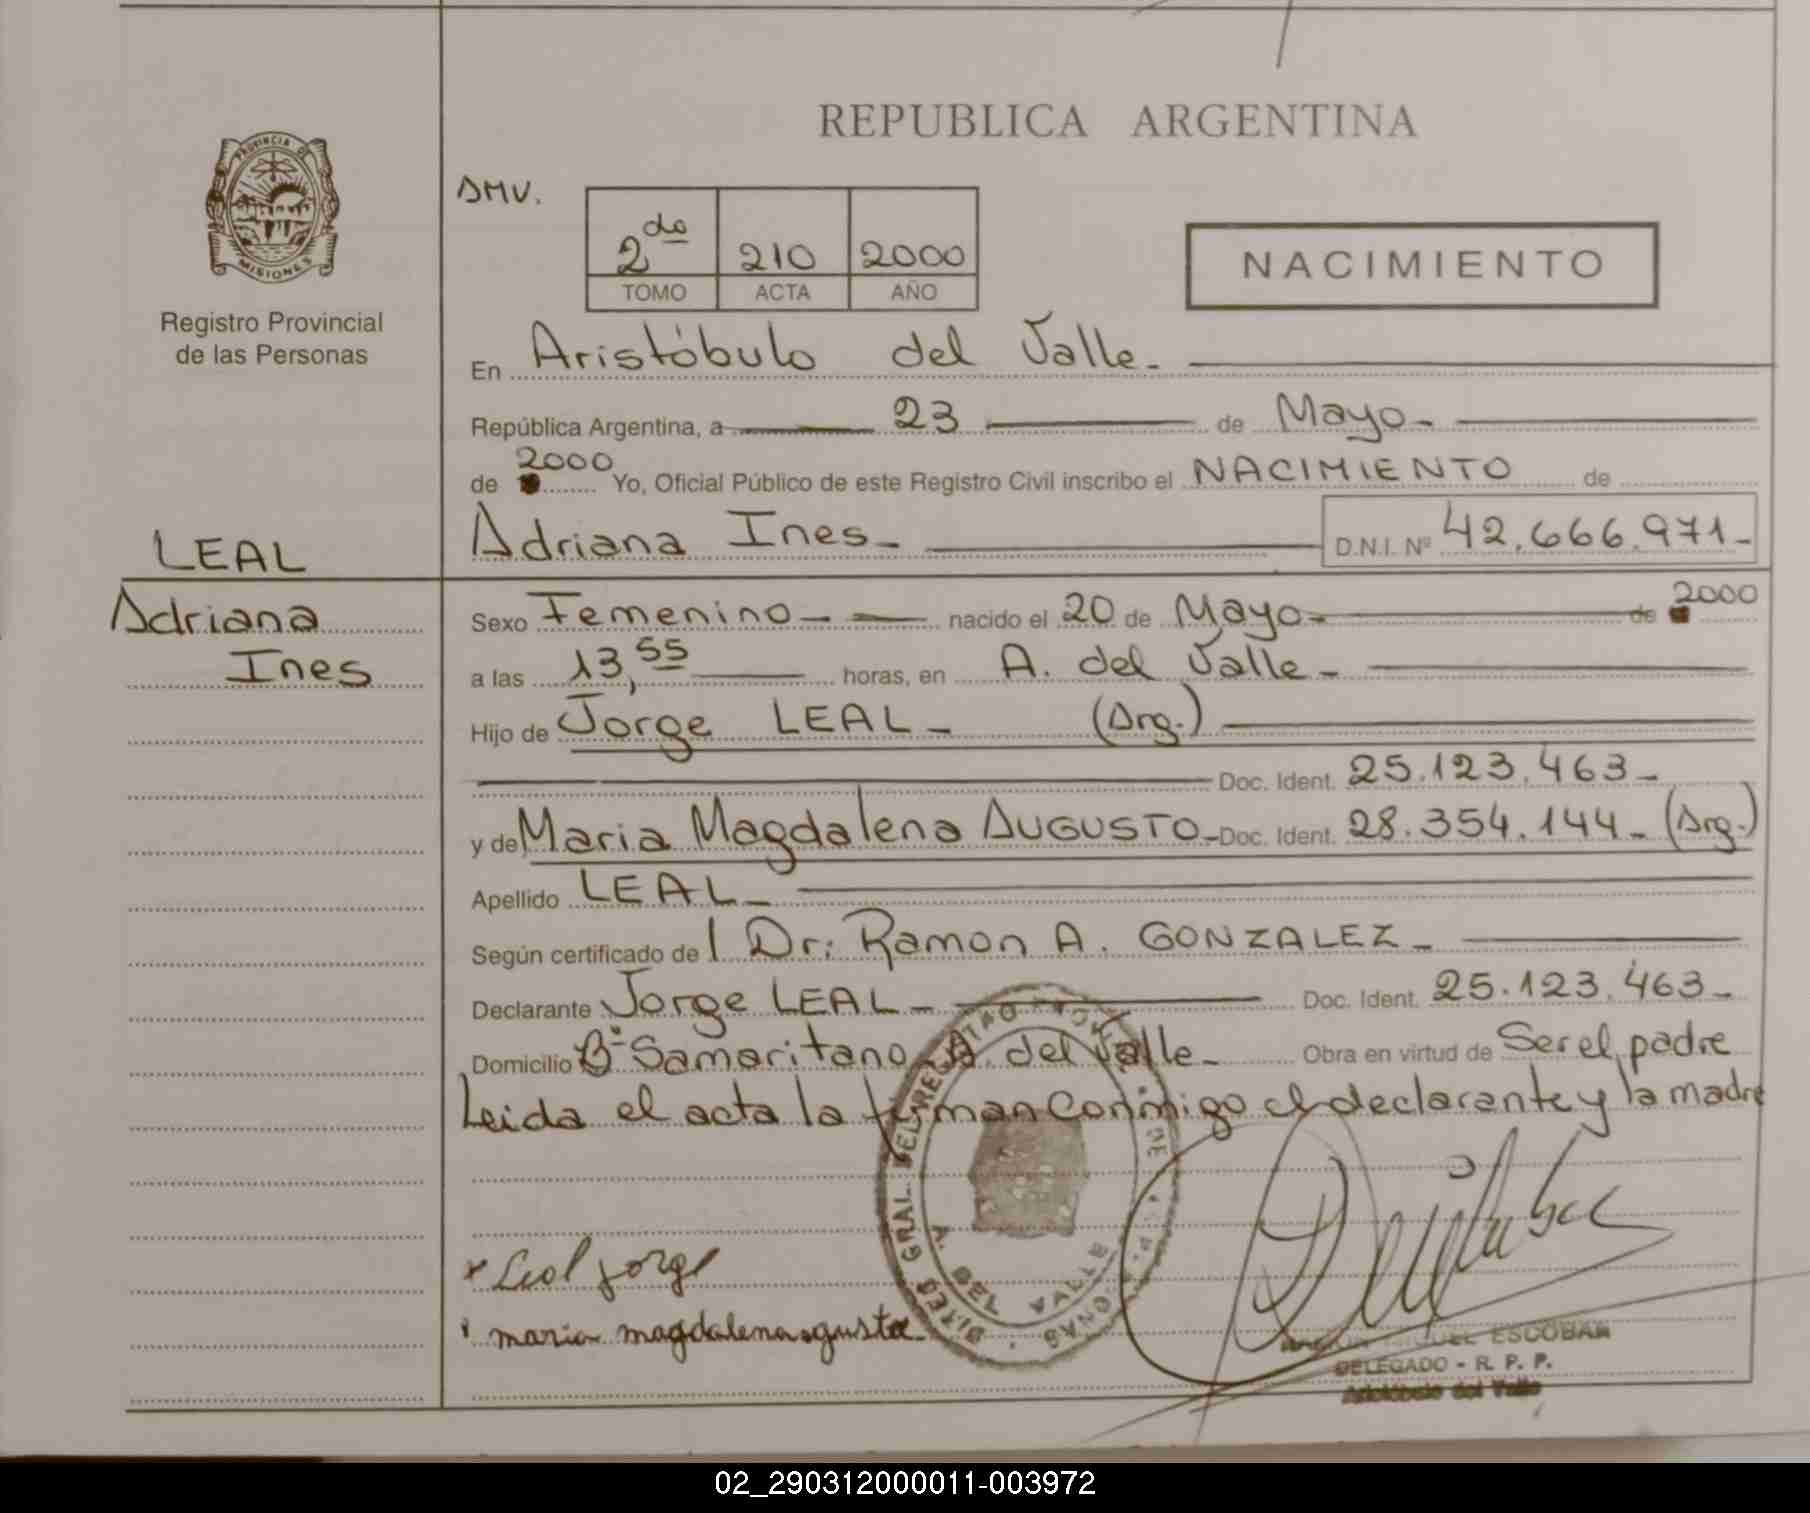 REPUBLICA ARGENTINA
PROVINCIA DE
MISIONES
Registro Provincial
de las Personas
DMV.
2do 210 2000
TOMO ACTA AÑO
NACIMIENTO
En Aristóbulo del Valle-
República Argentina, a 23 de Mayo-
de 2000 Yo, Oficial Público de este Registro Civil inscribo el NACIMIENTO de
Adriana Ines- D.N.I. Nº 42.666.971-
LEAL
Adriana
Ines
Sexo Femenino- nacido el 20 de Mayo- de 2000
a las 13,55 horas, en A. del Valle-
Hijo de Jorge LEAL- (Arg.)
Doc. Ident. 25.123.463-
y de Maria Magdalena AUGUSTO- Doc. Ident. 28.354.144- (Arg.)
Apellido LEAL-
Según certificado de l Dr: Ramon A. GONZALEZ-
Declarante Jorge LEAL- Doc. Ident. 25.123.463-
Domicilio Bº Samaritano A. del Valle- Obra en virtud de Ser el padre
Leida el acta la firman conmigo el declarante y la madre
GRAL. DEL REGISTRO
A. DEL VALLE
x Leal Jorge
maria magdalena agusto
MIGUEL ESCOBAR
DELEGADO - R. P. P.
Aristóbulo del Valle
02_290312000011-003972